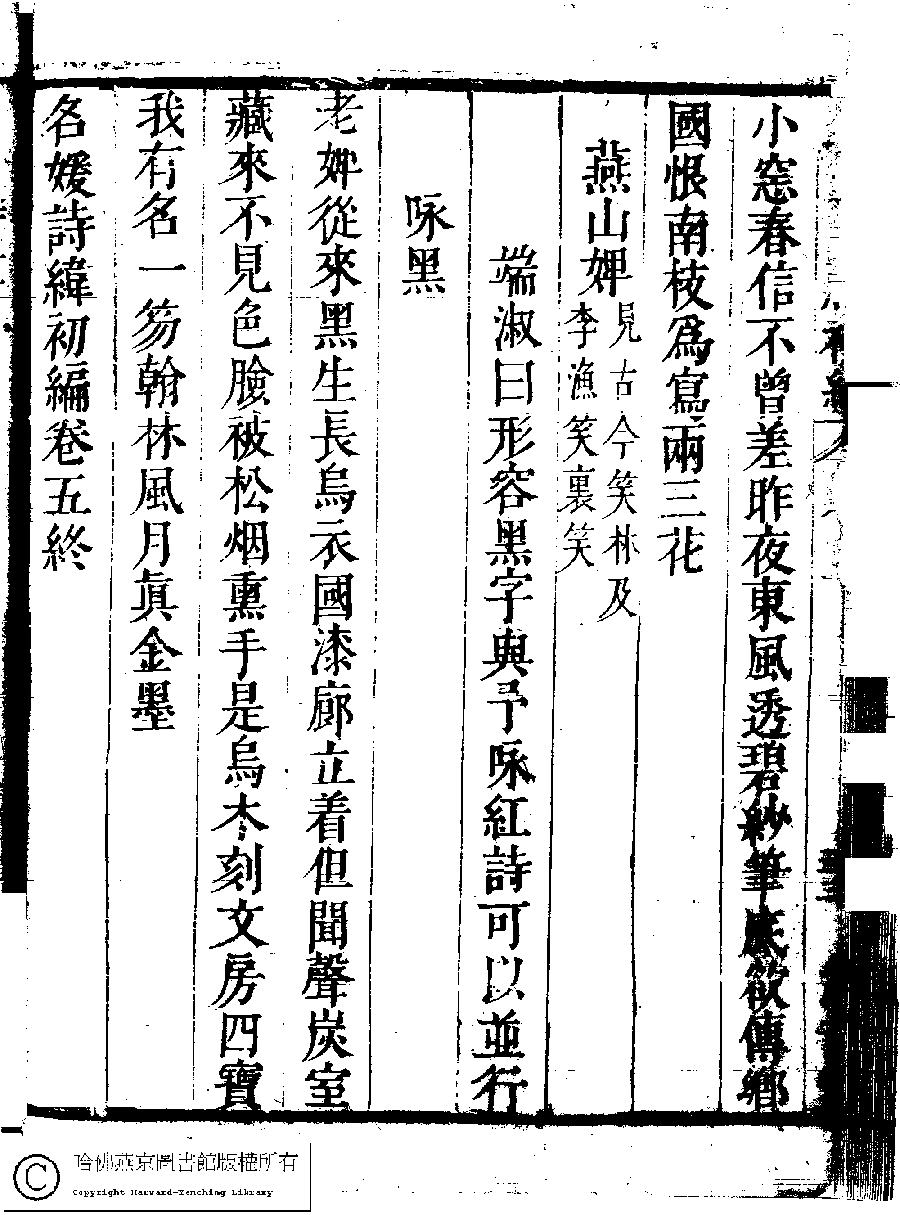 小窓春信不曾差昨夜東風透碧紗筆底欲傳鄉
國恨南枝爲寫兩三花
燕山婢
見古今笑林及
李漁笑裏笑
端淑曰形容黑字與予咏紅詩可以並行
咏黑
老婢從來黑生長烏衣國漆廊立着但聞聲炭室
藏來不見色臉被松烟熏手是烏木刻文房四寶
我有名一笏翰林風月眞金墨
名媛詩緯初編卷五終
哈佛燕京圖書館版權所有
Copyright Harvard-Yenching Library